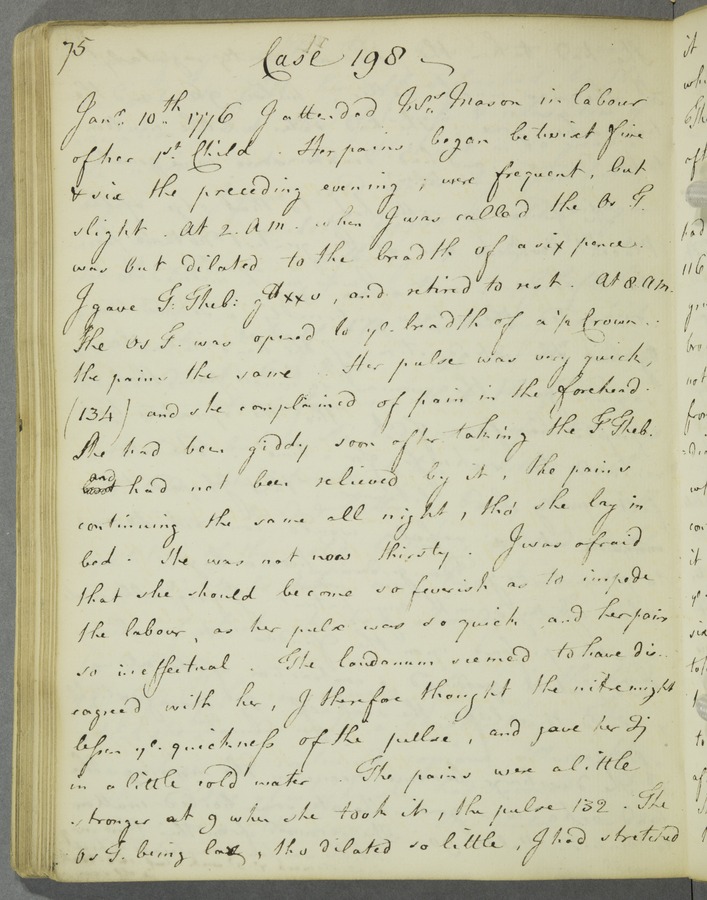 75
Case 198
Jany. 10th. 1776 I attended Mrs. Mason in labour
of her 1st. Child. Her pains began betwixt five
& six the preceding evening; were frequent, but
slight. At 2. A.m. when I was called the Os T.
was but dilated to the breadth of a six pence.
I gave T: Theb: gtt xxv, and retired to rest. At 8. A.m.
The Os T. was opened to ye. breadth of a ½ Crown.
the pains the same. Her pulse was very quick,
(134) and she complained of pain in the forehead.
She had been giddy soon after taking the T Theb.
and had not been relieved by it, the pains
continuing the same all night, tho' she lay in
bed. She was not now thirsty. I was afraid
that she should become so feverish as to impede
the labour, as her pulse was so quick and her pain
so ineffectual. The laudanum seemed to have dis-
eagreed with her, I therefoe thought the nitre might
lessen ye. quickness of the pullse, and gave her ʒj
in a little cold water. The pains were a little
stronger at 9 when she took it, the pulse 132. The
Os T. being lax, tho dilated so little, I had stretched